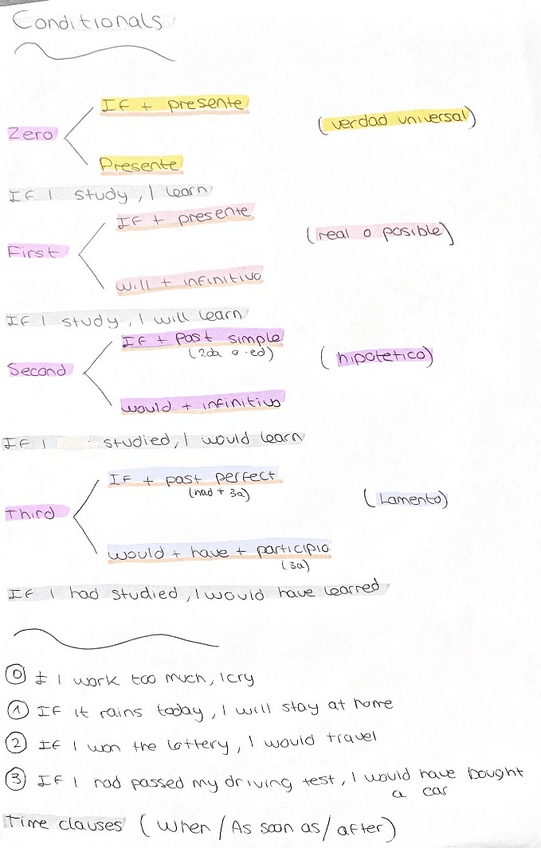 Conditionals
If + presente
Zero
(verdad universal)
Presente
If I study, I learn
If + presente
First
(real o posible)
will + infinitivo
If I study, I will learn
If + Past simple
(2da o -ed)
Second
(hipotetico)
would + infinitivo
If I studied, I would learn
If + past perfect
(had + 3a)
Third
(Lamento)
would + have + participio
(3a)
If I had studied, I would have learned
0 If I work too much, I cry
1 If it rains today, I will stay at home
2 If I won the lottery, I would travel
3 If I had passed my driving test, I would have bought
a car
Time clauses (When / As soon as / after)